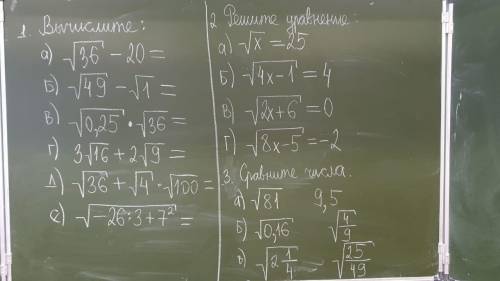 1. Вычислите:
а) √36 − 20 =
б) √49 − √1 =
в) √0,25 · √36 =
г) 3√16 + 2√9 =
д) √36 + √4 · √100 =
е) √(−26:3+7²) =
2 Решите уравнение:
а) √x = 25
б) √(4x−1) = 4
в) √(2x+6) = 0
г) √(8x−5) = −2
3. Сравните числа.
а) √81 9,5
б) √0,16 √(4/9)
в) √(2 1/4) √(25/49)